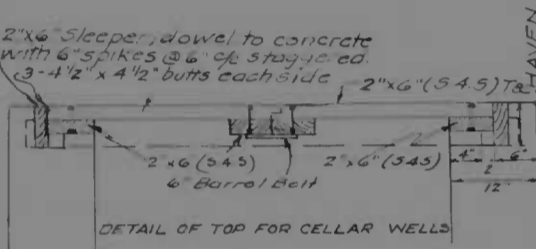 2"x6" Sleeper, dowel to concrete
with 6" spikes @ 6" c/c staggered.
3-4½" x 4½" butts each side
2"x6" (S4S) T&G
HAVEN
2 x6 (S4S)
2"x6" (S4S)
6" Barrel Bolt
4"
6"
12"
DETAIL OF TOP FOR CELLAR WELLS